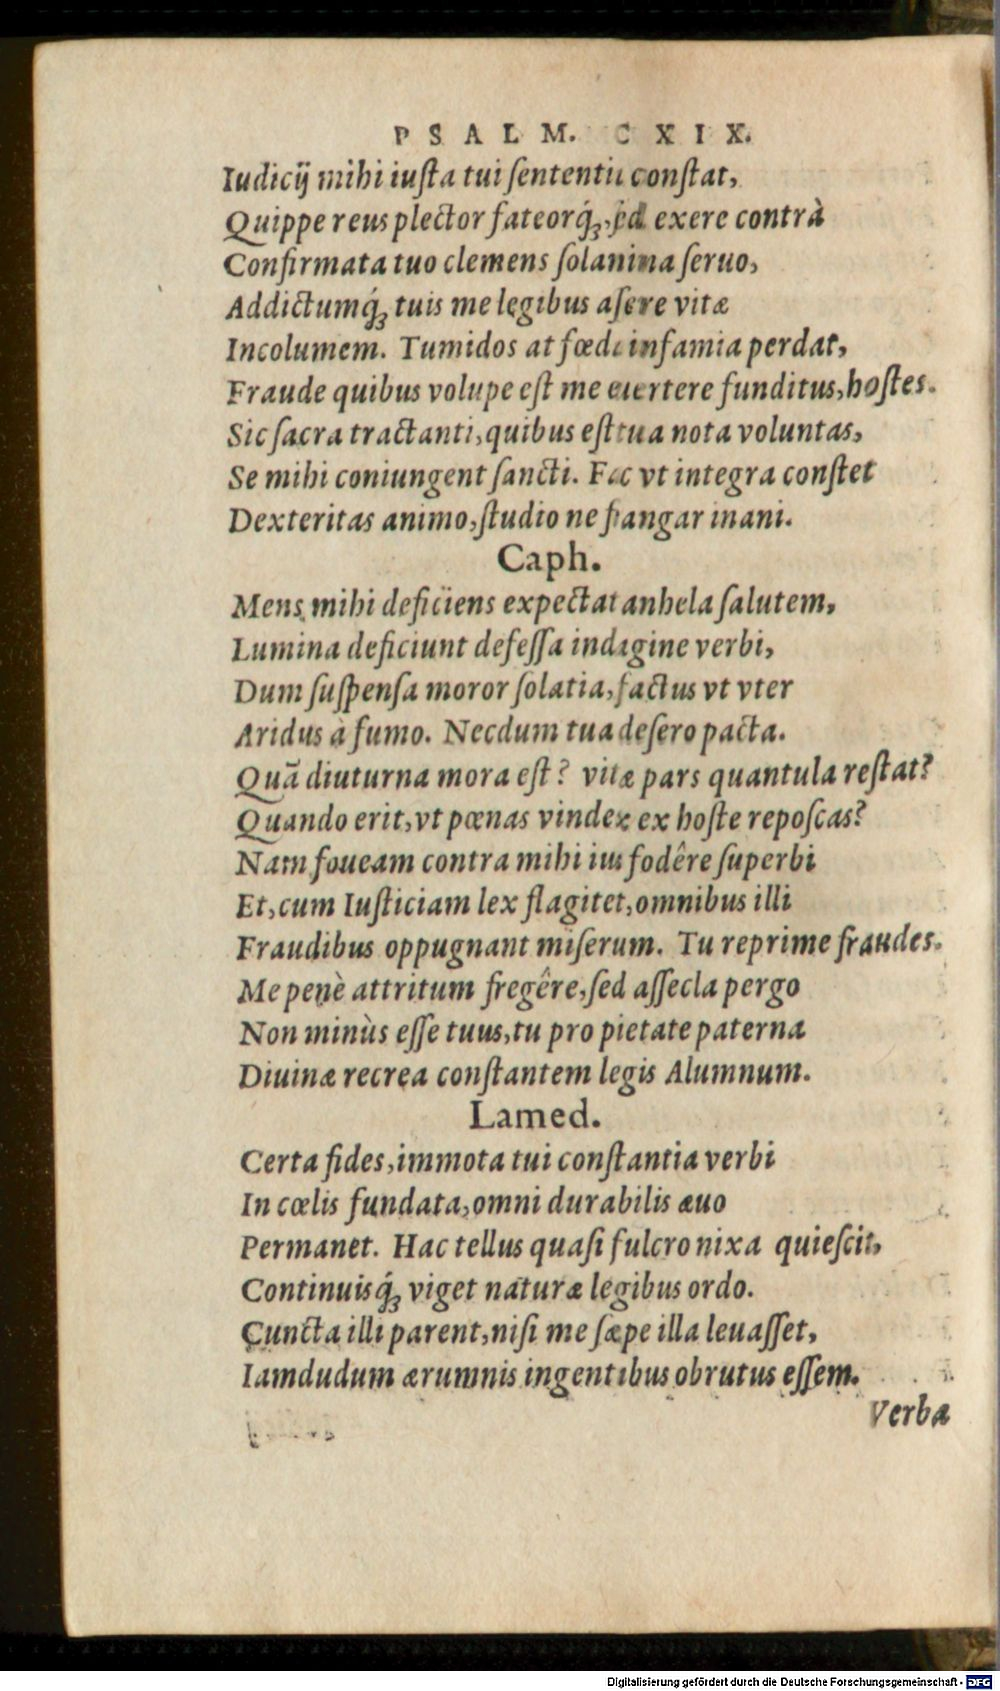 PSALM. CXIX.
Iudicij mihi iuſta tui ſententia conſtat,
Quippe reus plector fateorq́ꝫ, ſed exere contrà
Confirmata tuo clemens ſolamina ſeruo,
Addictumq́ꝫ tuis me legibus aſere vitæ
Incolumem. Tumidos at fœda infamia perdat,
Fraude quibus volupe eſt me euertere funditus, hoſtes.
Sic ſacra tractanti, quibus eſt tua nota voluntas,
Se mihi coniungent ſancti. Fac vt integra conſtet
Dexteritas animo, ſtudio ne frangar inani.
Caph.
Mens mihi deficiens expectat anhela ſalutem,
Lumina deficiunt defeſſa indagine verbi,
Dum ſuſpenſa moror ſolatia, factus vt vter
Aridus à fumo. Necdum tua deſero pacta.
Quā diuturna mora eſt? vitæ pars quantula reſtat?
Quando erit, vt pœnas vindex ex hoſte repoſcas?
Nam foueam contra mihi ius fodêre ſuperbi
Et, cum Iuſticiam lex flagitet, omnibus illi
Fraudibus oppugnant miſerum. Tu reprime fraudes.
Me penè attritum fregêre, ſed aſſecla pergo
Non minùs eſſe tuus, tu pro pietate paterna
Diuinæ recrea conſtantem legis Alumnum.
Lamed.
Certa fides, immota tui conſtantia verbi
In cœlis fundata, omni durabilis æuo
Permanet. Hac tellus quaſi fulcro nixa quieſcit,
Continuisq́ꝫ viget naturæ legibus ordo.
Cuncta illi parent, niſi me ſæpe illa leuaſſet,
Iamdudum ærumnis ingentibus obrutus eſſem.
Verba
Digitalisierung gefördert durch die Deutsche Forschungsgemeinschaft - DFG